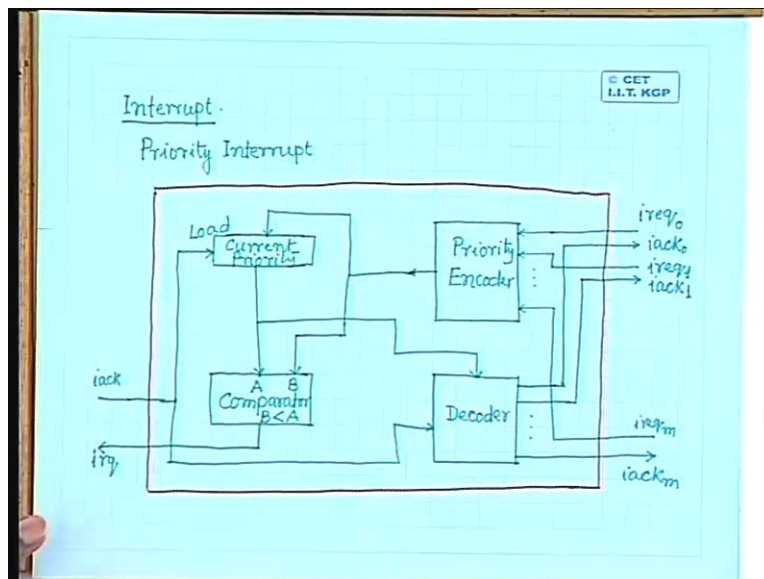 © CET
I.I.T. KGP
Interrupt.
Priority Interrupt
Load
Current
Priority
Priority
Encoder
ireq0
iack0
ireq1
iack1
iack
A B
Comparator
B<A
Decoder
irq
ireqm
iackm